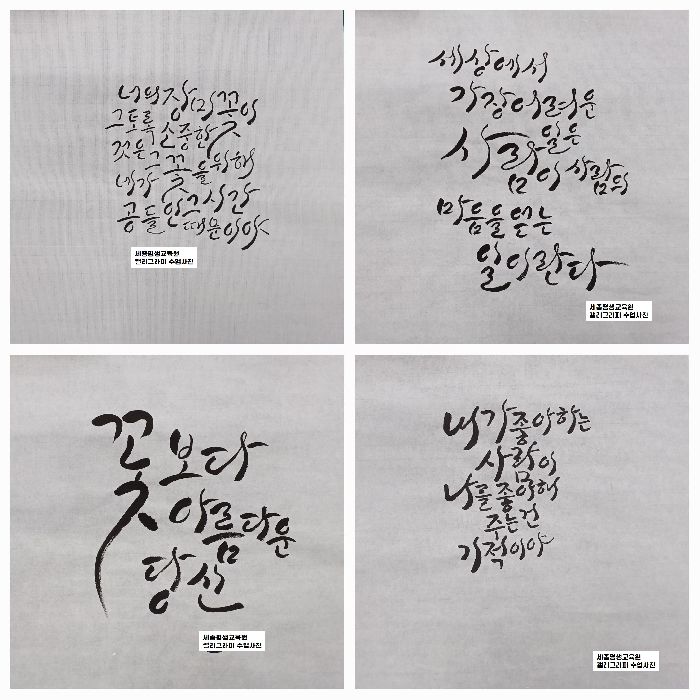 너의 장미꽃이
그토록 소중한
것은 그 꽃을 위해
네가
공들인 그 시간
때문이야
세종평생교육원
캘리그라피 수업사진
세상에서
가장 어려운
일은
사람이 사람의
마음을 얻는
일이란다
세종평생교육원
캘리그라피 수업사진
꽃보다
아름다운
당신
세종평생교육원
캘리그라피 수업사진
내가 좋아하는
사람이
나를 좋아해
주는 건
기적이야
세종평생교육원
캘리그라피 수업사진